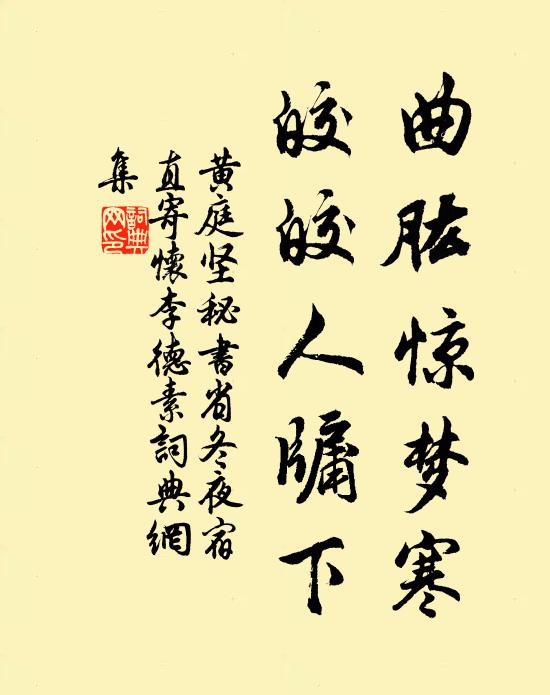 曲肱惊梦寒
皎皎人牖下
黄庭坚秘书省冬夜宿
直寄懷李德素詞典網
集
詞典
网印